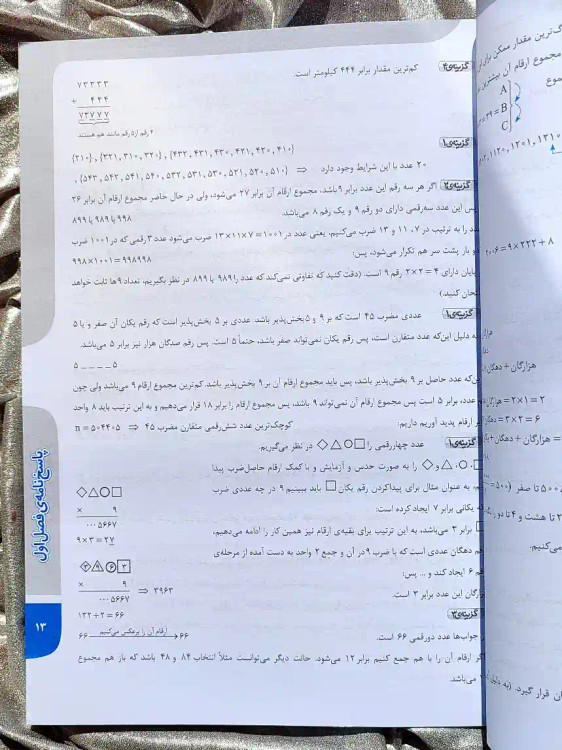 گزینه‌ی ۴ کم‌ترین مقدار برابر ۴۴۴ کیلومتر است.
۷۳۳۳۳
+ ۴۴۴
۷۳۷۷۷
۴ رقم از ۵ رقم مانند هم هستند
گزینه‌ی ۱
{۲۱۰} , {۳۲۱, ۳۱۰, ۳۲۰} , {۴۳۲, ۴۳۱, ۴۳۰, ۴۲۱, ۴۲۰, ۴۱۰}
, {۵۴۳, ۵۴۲, ۵۴۱, ۵۴۰, ۵۳۲, ۵۳۱, ۵۳۰, ۵۲۱, ۵۲۰, ۵۱۰} ⇒ ۲۰ عدد با این شرایط وجود دارد
گزینه‌ی ۲ اگر هر سه رقم این عدد برابر ۹ باشد، مجموع ارقام آن برابر ۲۷ می‌شود، ولی در حال حاضر مجموع ارقام آن برابر ۲۶
پس این عدد سه‌رقمی دارای دو رقم ۹ و یک رقم ۸ می‌باشد.
۹۹۸ یا ۹۸۹ یا ۸۹۹
را به ترتیب در ۷، ۱۱ و ۱۳ ضرب می‌کنیم، یعنی عدد در ۱۰۰۱ = ۷×۱۱×۱۳ ضرب می‌شود عدد ۳ رقمی که در ۱۰۰۱ ضرب
دو بار پشت سر هم تکرار می‌شود، پس:
۹۹۸×۱۰۰۱ = ۹۹۸۹۹۸
پایان دارای ۴ = ۲×۲ رقم ۹ است. (دقت کنید که تفاوتی نمی‌کند که عدد را ۹۸۹ یا ۸۹۹ در نظر بگیریم، تعداد ۹ها ثابت خواهد
امتحان کنید.)
گزینه‌ی ۱ عددی مضرب ۴۵ است که بر ۹ و ۵ بخش‌پذیر باشد. عددی بر ۵ بخش‌پذیر است که رقم یکان آن صفر و یا ۵
به دلیل این‌که عدد متقارن است، پس رقم یکان نمی‌تواند صفر باشد، حتماً ۵ است. پس رقم صدگان هزار نیز برابر ۵ می‌باشد.
۵ _ _ _ _ ۵
این‌که عدد حاصل بر ۹ بخش‌پذیر باشد، پس باید مجموع ارقام آن بر ۹ بخش‌پذیر باشد. کم‌ترین مجموع ارقام ۹ می‌باشد ولی چون
عدد، برابر ۵ است پس مجموع ارقام آن نمی‌تواند ۹ باشد، پس مجموع ارقام را برابر ۱۸ قرار می‌دهیم و به این ترتیب باید ۸ واحد
ارقام پدید آوریم داریم:
کوچک‌ترین عدد شش‌رقمی متقارن مضرب ۴۵ ⇒ n = ۵۰۴۴۰۵
گزینه‌ی ۱ عدد چهاررقمی را ◇△○□ در نظر می‌گیریم.
△، ○ و ◇ را به صورت حدس و آزمایش و با کمک ارقام حاصل‌ضرب پیدا
به عنوان مثال برای پیدا‌کردن رقم یکان □ باید ببینیم ۹ در چه عددی ضرب
یکانی برابر ۷ ایجاد کرده است:
□ برابر ۳ می‌باشد، به این ترتیب برای بقیه‌ی ارقام نیز همین کار را ادامه می‌دهیم،
رقم دهگان عددی است که با ضرب ۹ در آن و جمع ۲ واحد به دست آمده از مرحله‌ی
۶ ایجاد کند و ... پس:
هزارگان این عدد برابر ۳ است.
◇△○□
× ۹
۰۰۰۵۶۶۷
۹×۳ = ۲۷
× ۹ ⇒ ۳۹۶۳
۰۰۰۵۶۶۷
گزینه‌ی ۳
۱۳۲÷۲ = ۶۶
جواب‌ها عدد دورقمی ۶۶ است.
۶۶ ارقام آن را برعکس می‌کنیم ۶۶
اگر ارقام آن را با هم جمع کنیم برابر ۱۲ می‌شود. حالت دیگر می‌توانست مثلاً انتخاب ۸۴ و ۴۸ باشد که باز هم مجموع
می‌باشد.
پاسخ‌نامه‌ی فصل اول
۱۳
مقدار ممکن برای
مجموع ارقام آن بیشترین
A
B
C
۱۱۲۰, ۱۲۰۱, ۱۳۱۰
۹×۲۲۲+۸
هزارگان + دهگان
۲×۱ = ۲
۲×۳ = ۶
هزارگان + دهگان
۵۰۰ تا صفر
۲ تا هشت و ۴ تا دو
می‌کنیم.
قرار گیرد.